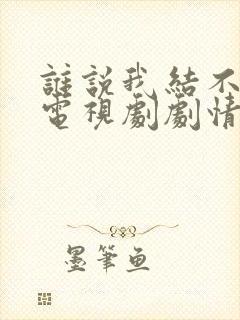 誰説我結不
電視劇劇情
墨筆魚